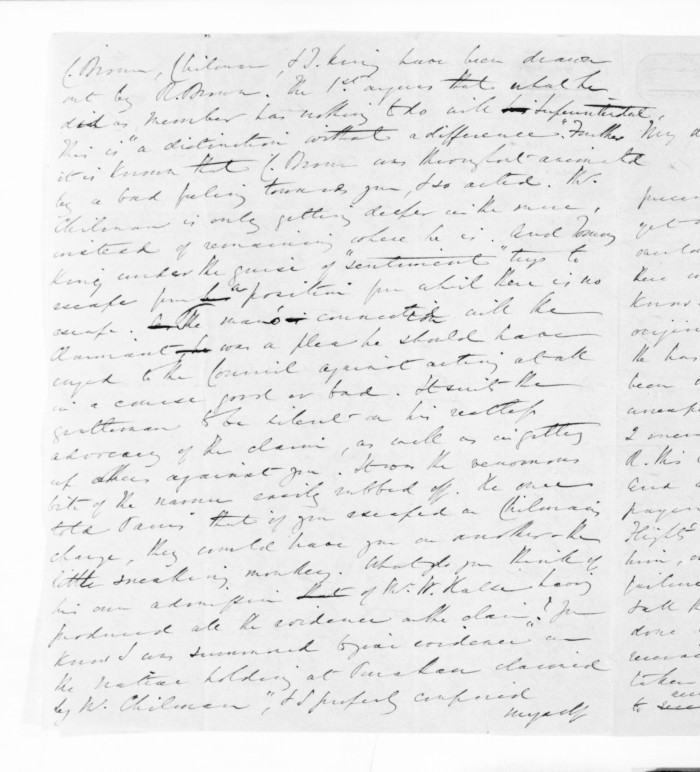 C. Brown, Chilman, & T. King have been drawn
out by R. Brown. The 1st argues that what he
did as member has nothing to do with his Superintendent,
This is "a distinction without a difference". Further "My d
it is known that C. Brown was throughout animated
by a bad feeling towards you, & so acted. Mr.
Chilman is only getting deeper in the mire,
instead of remaining where he is. And Tommy
King under the guise of "sentiment" trys to
escape from a position from which there is no
escape. The man's connection with the
Claimant was a plea he should have
urged to the Council against acting at all
in a course good or bad. It suits the
gentleman to be silent on his restless
advocacy of the claim, as well as in getting
up others against you. It was the venomous
bite of the easily rubbed off. He once
told that if you escaped on Chilman's
charge, they would have you on another – the
little sneaking monkey. What do you think of
his own admission of Mr. W. Halse having
produced all the evidence on the claim? You
know I was summoned to give evidence "on
the native holding at claimed
by W. Chilman", & I properly confined
myself
get
over
there
know
origin
He has
been
unexp
R. this
and
prayer
Flight
him,
failure
talk
done
taken
to